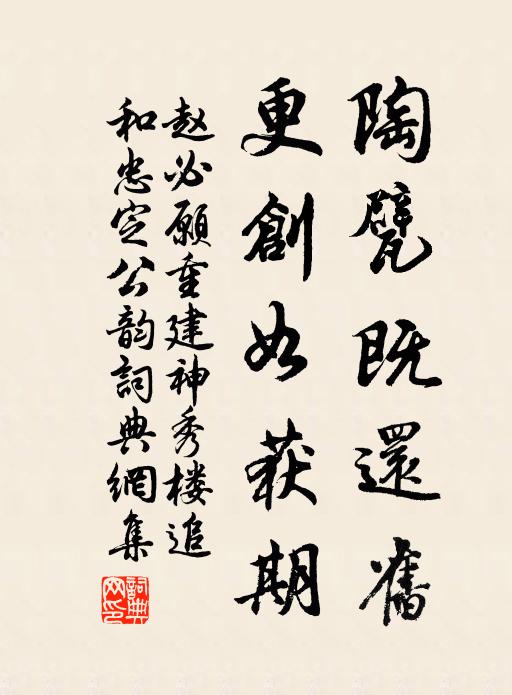 陶甓既還舊
更創如获期
赵必愿重建神秀楼追
和忠定公韵詞典網集